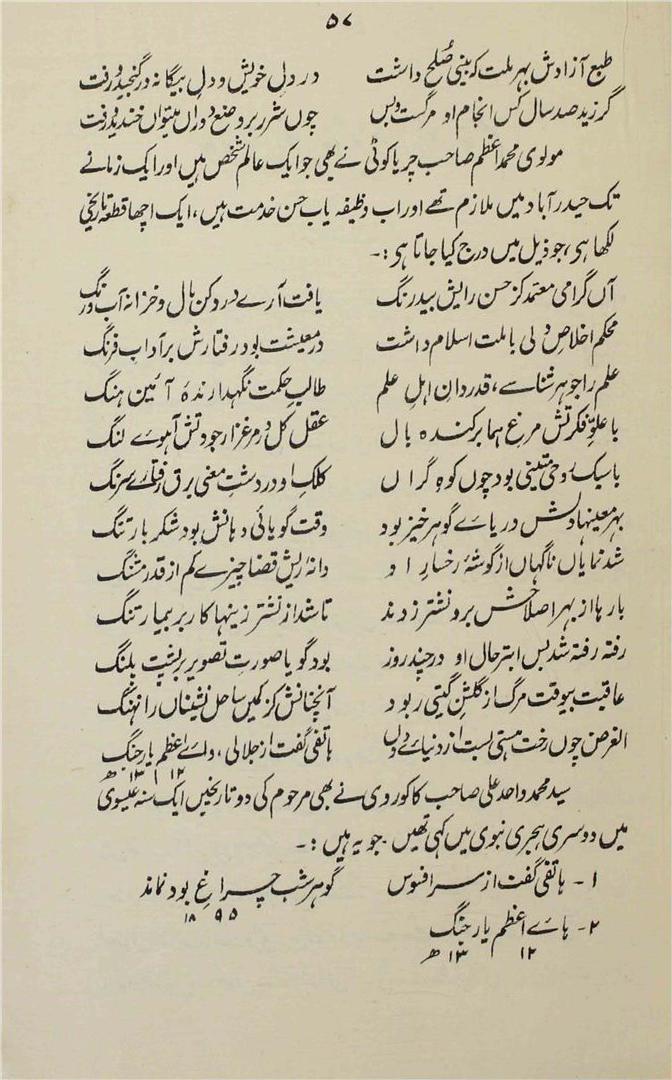 ۵۷
طبع آزادش بہر ملت کہ بینی صُلح داشت در دلِ خویش و دلِ بیگانہ در گنجید و رفت
گر زید صد سال کس انجام او مرگست و بس چوں شرر بر وضع دوراں میتواں خندید و رفت
مولوی محمد اعظم صاحب چریاکوٹی نے بھی جو ایک عالم شخص ہیں اور ایک زمانے
تک حیدرآباد میں ملازم تھے اور اب وظیفہ یاب حسن خدمت ہیں، ایک اچھا قطعہ تاریخی
لکھا ہی، جو ذیل میں درج کیا جاتا ہی :۔
آں گرامی معتمد کز حسن رایش بیدرنگ یافت آرے در دکن مال و خزانہ آب و رنگ
محکم اخلاصِ دلی با ملت اسلام داشت در معیشت بود رفتارش بر آدابِ فرنگ
علم را جوہر شناسے، قدردانِ اہلِ علم طالبِ حکمت نگہدارندہ آئین ہنگ
با علوِّ فکرتش مرغ ہما برکندہ بال عقل کل در مرغزار جودتش آہوے لنگ
با سبک روحی متینی بود چوں کوہِ گراں کلک او در دشتِ معنی برق رفتارے سرنگ
بہر معنیہا دلش دریاے گوہر خیز بود وقت گویائی دہانش بود شکر بار تنگ
شد نمایاں ناگہاں از گوشۂ رخسارِ او دانۂ ریش قضا چیزے کم از قدر مشنگ
بارہا از بہر اصلاحش برو نشتر زدند تا شد از نشتر زنیہا کار بر بیمار تنگ
رفتہ رفتہ شد بس ابتر حال او در چند روز بود گویا صورتِ تصویر بر پشت پلنگ
عاقبت بیوقت مرگ از گلشنِ گیتی ربود آنچنانش کز کمیں ساحل نشیناں را نہنگ
الغرض چوں رخت ہستی بست از دنیاے دوں ہاتفی گفت از جلالی، واے اعظم یار جنگ
۱۳۱۲ھ
سید محمد واحد علی صاحب کاکوروی نے بھی مرحوم کی دو تاریخیں ایک سنہ عیسوی
میں دوسری ہجری نبوی میں کہی تھیں۔ جو یہ ہیں :۔
۱۔ ہاتفی گفت از سر افسوس گوہر شب چراغِ بود نماند
۱۸۹۵
۲۔ ہاے اعظم یار جنگ
۱۳۱۲ھ